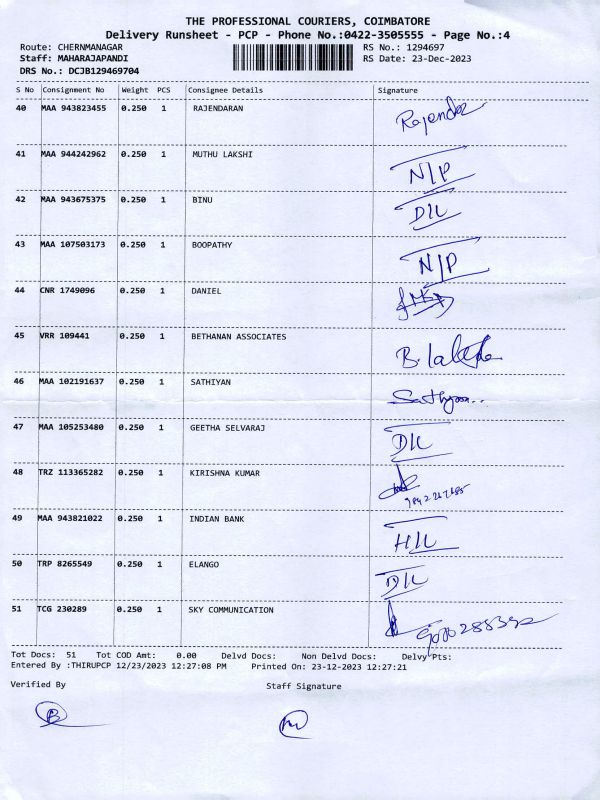 THE PROFESSIONAL COURIERS, COIMBATORE
Delivery Runsheet - PCP - Phone No.:0422-3505555 - Page No.:4
Route: CHERNMANAGAR RS No.: 1294697
Staff: MAHARAJAPANDI RS Date: 23-Dec-2023
DRS No.: DCJB129469704
S No Consignment No Weight PCS Consignee Details Signature
40 MAA 943823455 0.250 1 RAJENDARAN Rajender
41 MAA 944242962 0.250 1 MUTHU LAKSHI N/P
42 MAA 943675375 0.250 1 BINU D/L
43 MAA 107503173 0.250 1 BOOPATHY N/P
44 CNR 1749096 0.250 1 DANIEL
45 VRR 109441 0.250 1 BETHANAN ASSOCIATES B.
46 MAA 102191637 0.250 1 SATHIYAN Sathyan..
47 MAA 105253480 0.250 1 GEETHA SELVARAJ D/L
48 TRZ 113365282 0.250 1 KIRISHNA KUMAR
49 MAA 943821022 0.250 1 INDIAN BANK H/L
50 TRP 8265549 0.250 1 ELANGO D/L
51 TCG 230289 0.250 1 SKY COMMUNICATION
Tot Docs: 51 Tot COD Amt: 0.00 Delvd Docs: Non Delvd Docs: Delvy Pts:
Entered By :THIRUPCP 12/23/2023 12:27:08 PM Printed On: 23-12-2023 12:27:21
Verified By Staff Signature